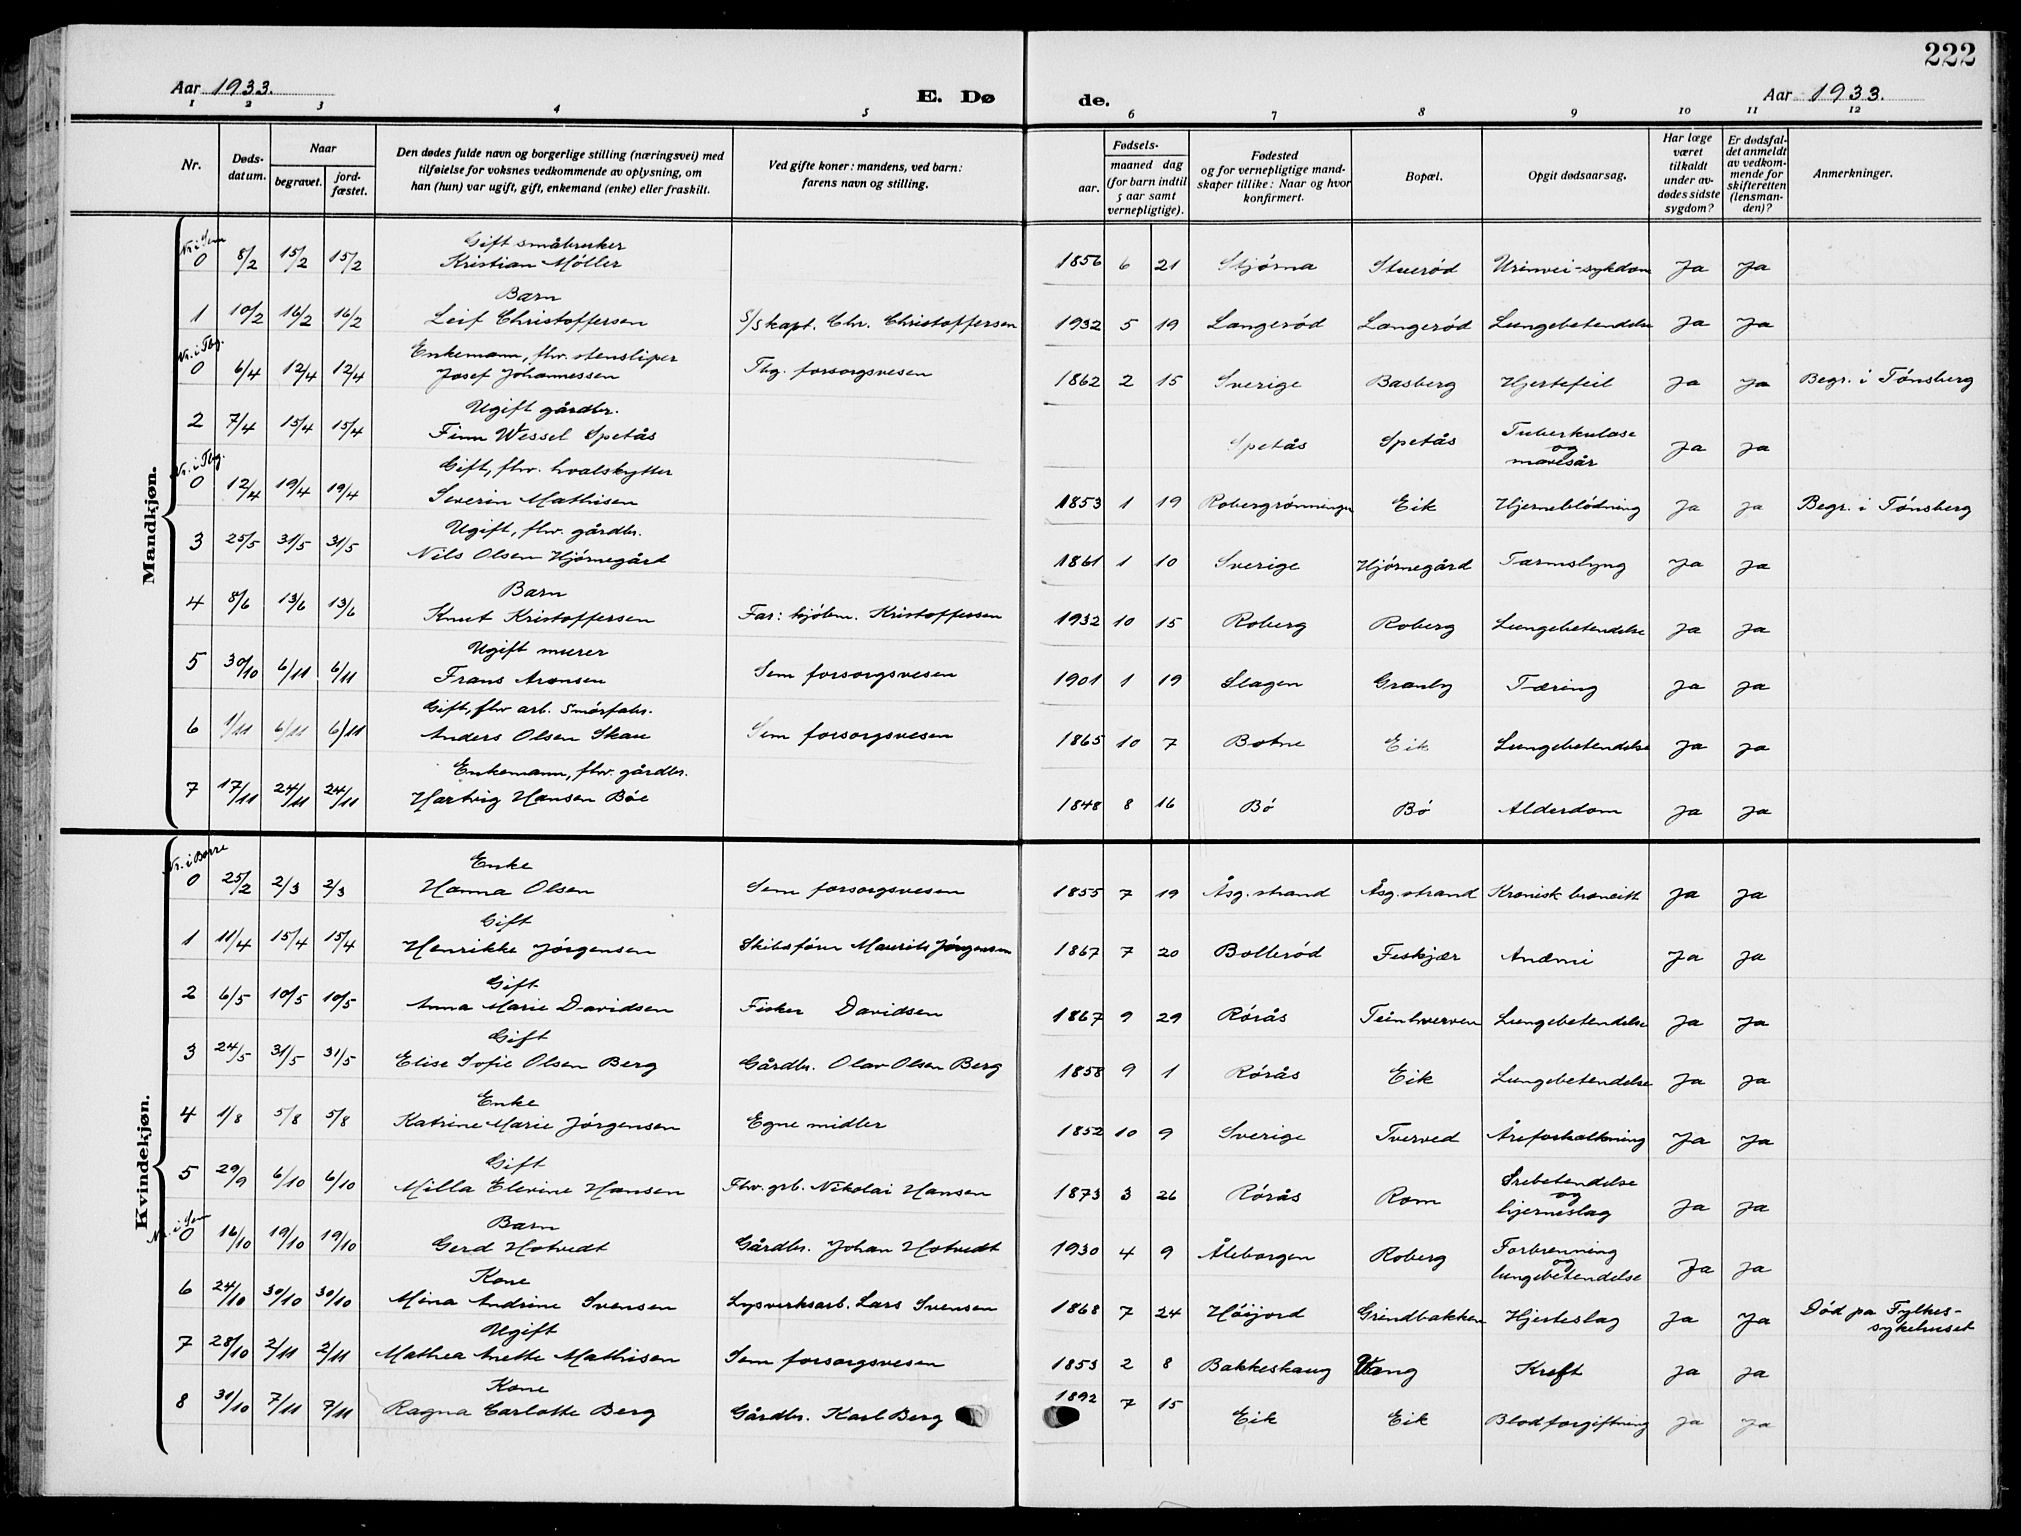 222
Aar 1933.
E. Dø
de.
Aar 1933.
1 2 3 4 5 6 7 8 9 10 11 12
Nr.
Døds-
datum.
Naar
begravet.
jord-
fæstet.
Den dødes fulde navn og borgerlige stilling (næringsvei) med
tilføielse for voksnes vedkommende av oplysning, om
han (hun) var ugift, gift, enkemand (enke) eller fraskilt.
Ved gifte koner: mandens, ved barn:
farens navn og stilling.
Fødsels-
aar.
maaned dag
(for barn indtil
5 aar samt
vernepligtige).
Fødested
og for vernepligtige mand-
skaper tillike: Naar og hvor
konfirmert.
Bopæl.
Opgit dødsaarsag.
Har læge
været
tilkaldt
under av-
dødes sidste
sygdom?
Er dødsfal-
det anmeldt
av vedkom-
mende for
skifteretten
(lensman-
den)?
Anmerkninger.
Mandkjøn.
Nr. i Sem
Gift småbruker
0 8/2 15/2 15/2 Kristian Møller 1856 6 21 Stjørna Stuerød Urinvei-sykdom Ja Ja
Barn
1 10/2 16/2 16/2 Leif Christoffersen S/Skapt. Chr. Christoffersen 1932 5 19 Langerød Langerød Lungebetendelse Ja Ja
Nr. i Tbg.
Enkemann, fhv. stensliper
0 6/4 12/4 12/4 Josef Johannessen Tbg. forsorgsvesen 1862 2 15 Sverige Basberg Hjertefeil Ja Ja Begr. i Tønsberg
Ugift gårdbr.
2 7/4 15/4 15/4 Finn Wessel Spetås Spetås Spetås Tuberkulose
og
mavesår Ja Ja
Nr. i Tbg.
Gift, fhv. hvalskytter
0 12/4 19/4 19/4 Severin Mathisen 1853 1 19 Robergrønningen Eik Hjerneblødning Ja Ja Begr. i Tønsberg
Ugift, fhv. gårdbr.
3 25/5 31/5 31/5 Nils Olsen Hjørnegård 1861 1 10 Sverige Hjørnegård Tarmslyng Ja Ja
Barn
4 8/6 13/6 13/6 Knut Kristoffersen Far: kjøbm. Kristoffersen 1932 10 15 Roberg Roberg Lungebetendelse Ja Ja
Ugift murer
5 30/10 6/11 6/11 Frans Aronsen Sem forsorgsvesen 1901 1 19 Slagen Granly Tæring Ja Ja
Gift, fhv arb. Smørfabr.
6 1/11 6/11 6/11 Anders Olsen Skau Sem forsorgsvesen 1865 10 7 Botne Eik Lungebetendelse Ja Ja
Enkemann, fhv. gårdbr.
7 17/11 24/11 24/11 Hartvig Hansen Bøe 1848 8 16 Bø Bø Alderdom Ja Ja
Kvindekjøn.
Nr. i Borre
Enke
0 25/2 2/3 2/3 Hanna Olsen Sem forsorgsvesen 1855 7 19 Åsg.strand Åsg.strand Kronisk broncitt Ja Ja
Gift
1 11/4 15/4 15/4 Henrikke Jørgensen Skibsfører Maurits Jørgensen 1867 7 20 Bollerød Feskjær Anæmi Ja Ja
Gift
2 6/5 10/5 10/5 Anna Marie Davidsen Fisker Davidsen 1867 9 29 Rørås Teinhverven Lungebetendelse Ja Ja
Gift
3 24/5 31/5 31/5 Elise Sofie Olsen Berg Gårdbr. Olav Olsen Berg 1858 9 1 Rørås Eik Lungebetendelse Ja Ja
Enke
4 1/8 5/8 5/8 Katrine Marie Jørgensen Egne midler 1852 10 9 Sverige Tverved Åreforkalkning Ja Ja
Gift
5 29/9 6/10 6/10 Milla Elevine Hansen Fhv. grb. Nikolai Hansen 1873 3 26 Rørås Rom Årebetendelse
og
hjerneslag Ja Ja
Nr. i Sem
Barn
0 16/10 19/10 19/10 Gerd Hotvedt Gårdbr. Johan Hotvedt 1930 4 9 Åleborgen Roberg Forbrenning
og
lungebetendelse Ja Ja
Kone
6 24/10 30/10 30/10 Mina Andrine Svensen Lysverksarb. Lars Svensen 1868 7 24 Høijord Grindbakken Hjerteslag Ja Ja Død på Fylkes-
sykehuset
Ugift
7 28/10 2/11 2/11 Mathea Anette Mathisen Sem forsorgsvesen 1853 2 8 Bakkeskaug Vang Kreft Ja Ja
Kone
8 31/10 7/11 7/11 Ragna Carlotte Berg Gårdbr. Karl Berg 1892 7 15 Eik Eik Blodforgiftning Ja Ja